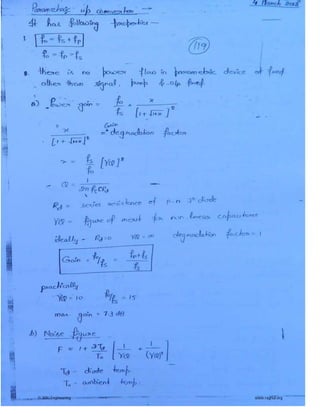 4 March 2018
Parametric up conversion :-
It has following properties —
1. fo = fs + fp
(119)
fo = fp - fs
2. there is no power flow in parametric device at freq
other than signal, pump & o/p freq.
a) Power gain = fo/fs × x/[1+√(1+x)]²
x/[1+√(1+x)]² = Gain degradation factor
x = fs/fo [γQ]²
Q = 1/(2π fs C Rd)
Rd = series resistance of p-n jn diode
γQ = figure of merit for non linear capacitance
ideally - Rd=0 γQ = ∞ degradation factor = 1
Gain = fo/fs = (fp+fs)/fs
practically
γQ = 10 fo/fs = 15
max gain = 7.3 dB
b) Noise figure
F = 1 + 2Td/To [1/γQ + 1/(γQ)²]
Td - diode temp.
To - ambient temp.